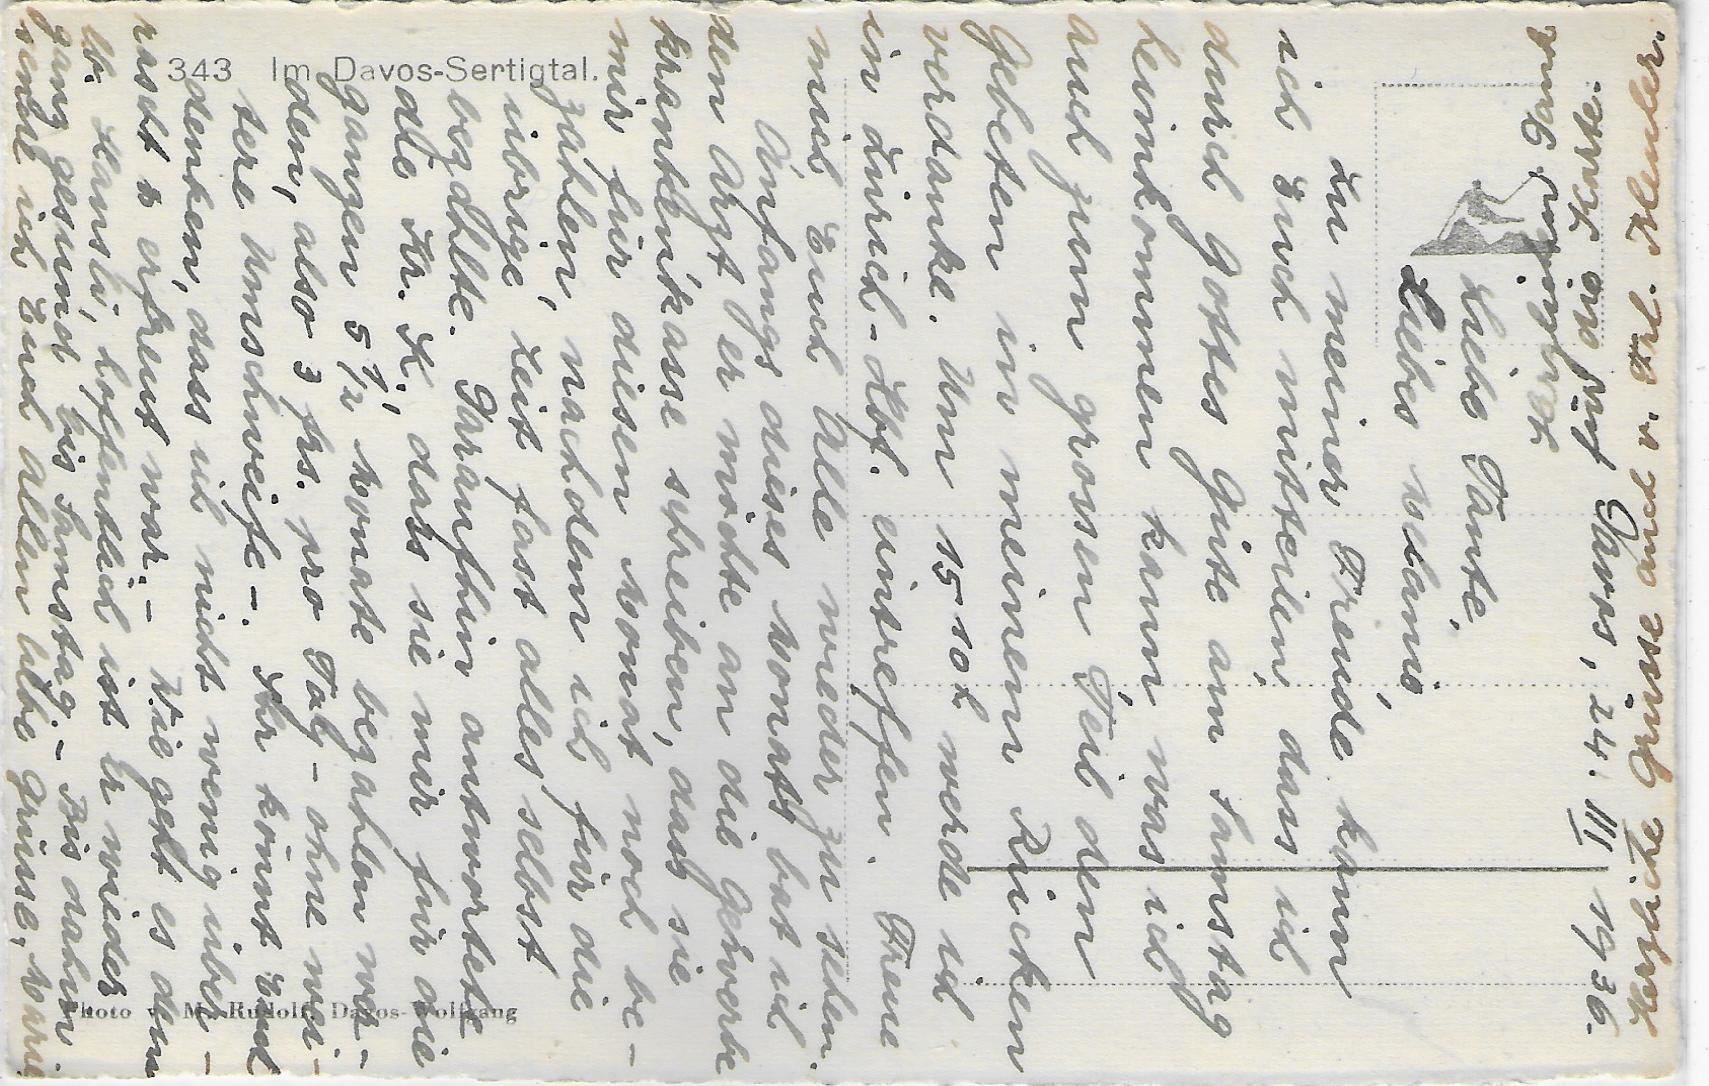 Herzliche Grüsse auch v. Frl. Bleuler.
für die Karte.
Davos, 24. III. 1936.
Liebe Tante,
Liebes
Zu meiner Freude kann
ich Euch mitteilen, dass ich
durch Gottes Güte am Samstag
heimkommen kann, was ich
auch zum grossen Teil den
Gebeten in meinem Rücken
verdanke. Um 15 10h werde ich
in Zürich-Hbf. eintreffen. Freue
mich Euch Alle wieder zu sehen.
Anfangs dieses Monats bat ich
den Arzt er möchte an die Gewerbe
krankenkasse schreiben, dass sie
mir für diesen Monat noch be-
zahlen, nachdem ich für die
übrige Zeit fast alles selbst
bezahlte. Daraufhin antwortete
die Kr. K., dass sie mir für die
ganzen 5 1/2 Monate bezahlen wer-
den, also 3 frs. pro Tag - ohne wei-
tere Umschweife -. Ihr könnt Euch
denken, dass ich nicht wenig über-
rascht & erfreut war. - Wie geht es dem
lb. Hansli, hoffentlich ist er wieder
ganz gesund bis Samstag - Bis dahin
sende ich Euch allen liebe Grüsse,
343 Im Davos-Sertigtal.
Photo v. M. Rudolf, Davos-Wolfgang